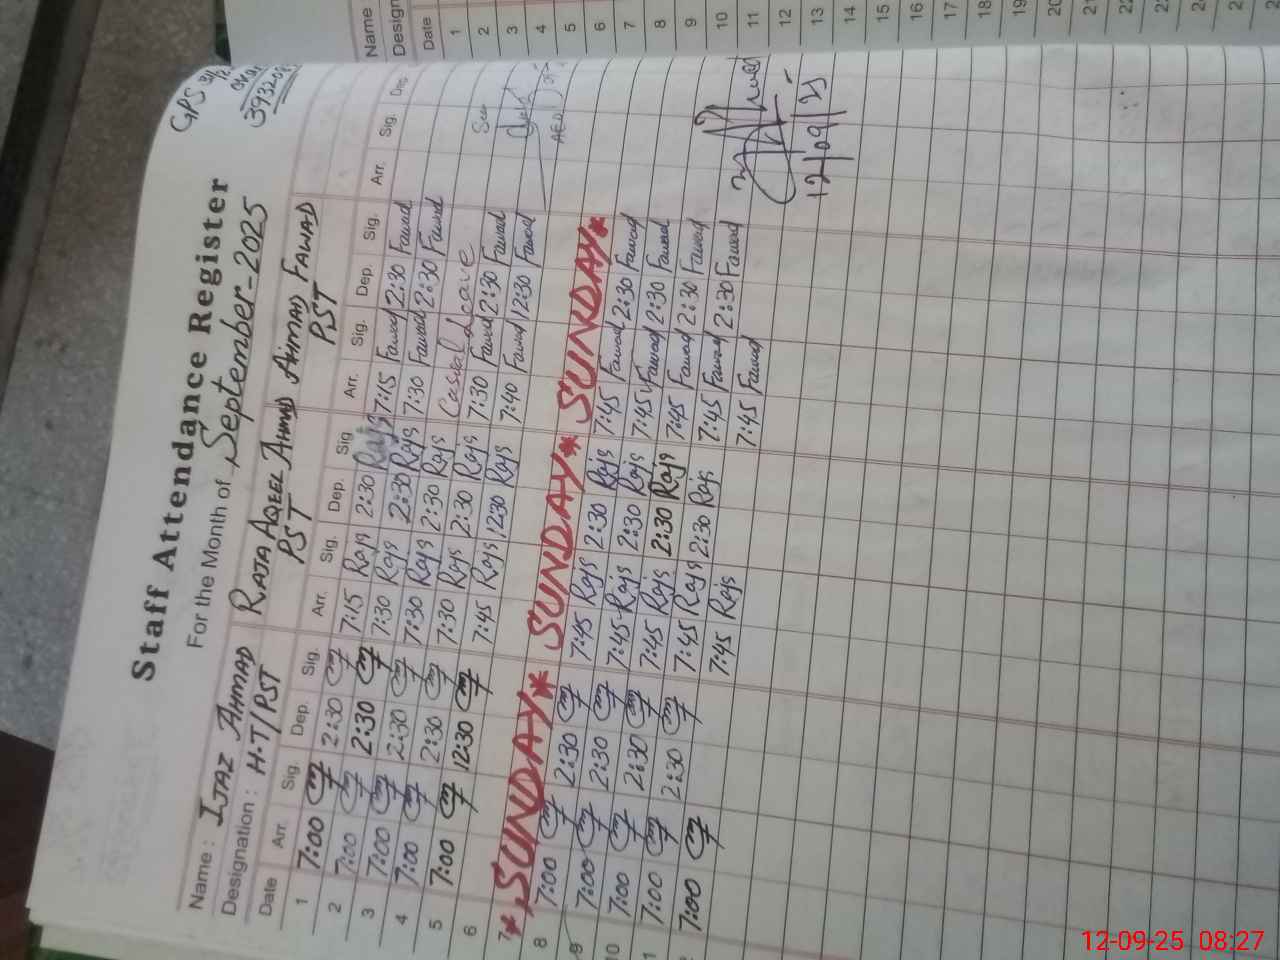 GPS
Staff Attendance Register
For the Month of September-2025
Name : IJAZ AHMAD RAJA AQEEL AHMAD AIMAD FAWAD
Designation : H.T/PST PST PST
Date Arr. Sig. Dep. Sig. Arr. Sig. Dep. Sig Arr. Sig. Dep. Sig. Arr. Sig. De
1 7:00 2:30 7:15 Rajs 2:30 Rajs 7:15 Fawad 2:30 Fawad
2 7:00 2:30 7:30 Rajs 2:30 Rajs 7:30 Fawad 2:30 Fawad
3 7:00 2:30 7:30 Rajs 2:30 Rajs Casual Leave
4 7:00 2:30 7:30 Rajs 2:30 Rajs 7:30 Fawad 2:30 Fawad
5 7:00 12:30 7:45 Rajs 12:30 Rajs 7:40 Fawad 12:30 Fawad
6
7 * SUNDAY * SUNDAY * SUNDAY *
8 7:00 2:30 7:45 Rajs 2:30 Rajs 7:45 Fawad 2:30 Fawad
9 7:00 2:30 7:45 Rajs 2:30 Rajs 7:45 Fawad 2:30 Fawad
10 7:00 2:30 7:45 Rajs 2:30 Rajs 7:45 Fawad 2:30 Fawad
7:00 2:30 7:45 Rajs 2:30 Rajs 7:45 Fawad 2:30 Fawad
7:00 7:45 Rajs 7:45 Fawad
12/09/25
Name
Design
Date
1
2
3
4
5
6
7
8
9
10
11
12
13
14
15
16
17
18
19
20
21
22
23
12-09-25 08:27